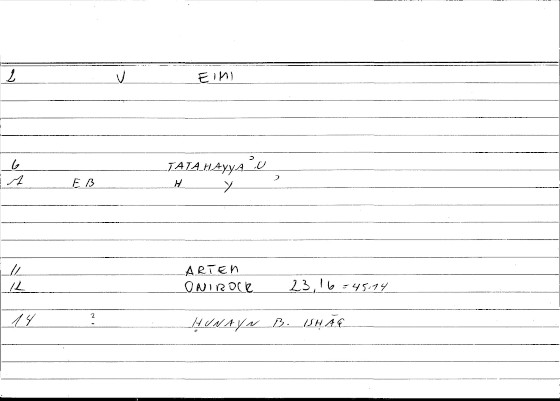 2 V EINI
6 TATAHAYYAʾU
1 EB H Y ʾ
11 ARTEM
12 ONIROCR 23,16 = 45.14
14 ? ḤUNAYN B. ISḤĀQ